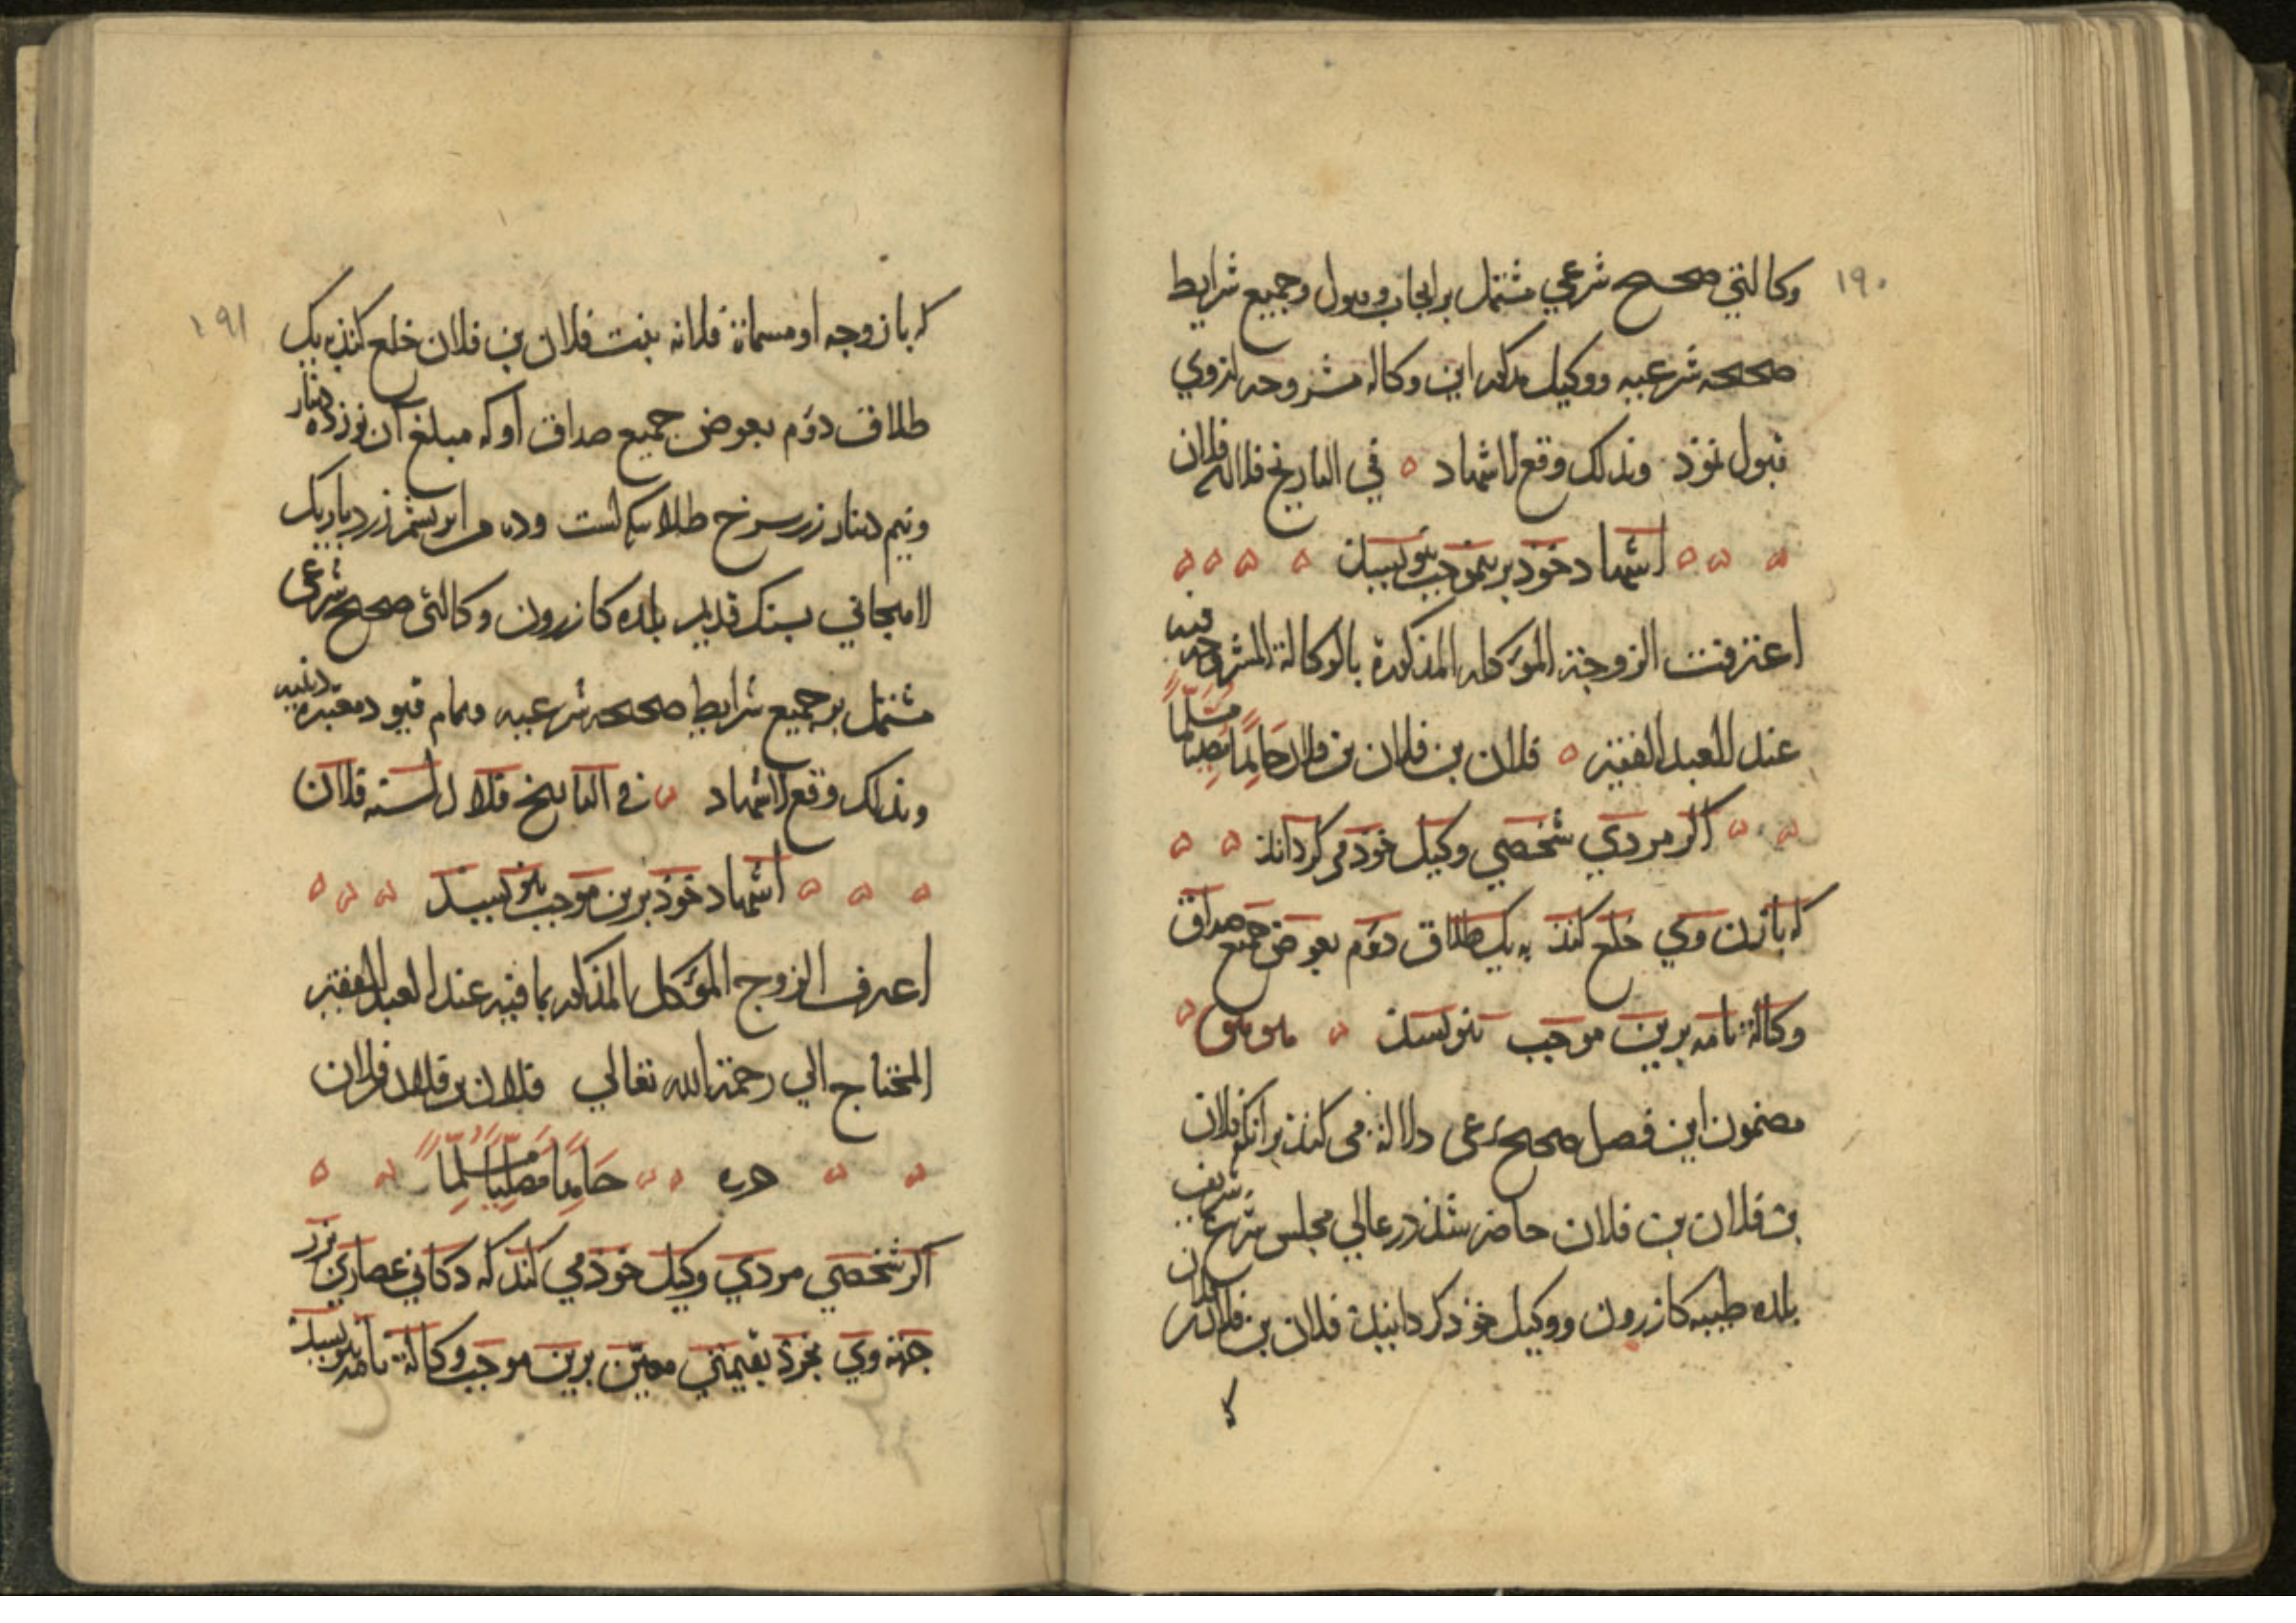 ١٩٠
وکالتي صحيح شرعي مشتمل بر ايجاب و قبول و جميع شرايط
صحيحه شرعيه و وکيل مذکور اين وکاله مشروحه ازوي
قبول نموذ وبذلک وقع الاشهاد في التاريخ فلان
اشهاد خوذ برين موجب بنويسد
اعترفت الزوجة الموکله المذکورة بالوکالة المشروحه فيه
عند العبد الفقير فلان بن فلان بن فلان حامدا مصليا مسلما
اکر مردي شخصي وکيل خوذ مي کرداند
که با زن وي خلع کند به يک طلاق دوم بعوض جميع صداق
وکالة نامه برين موجب بنويسد
مضمون اين فصل صحيح شرعي دلالة مي کند برآنکه فلان
بن فلان بن فلان حاضر شد در عالي مجلس شرع شريف
بلده طيبه کازرون و وکيل خوذ کردانيد فلان بن فلان
که با زوجه او مسماة فلانه بنت فلان بن فلان خلع کند به يک
١٩١
طلاق دوم بعوض جميع صداق او که مبلغ آن نوزده دينار
ونيم دينار زر سرخ طلا ست وده من ابريشم زرد باريک
لاميجاني بسنک قديم بلده کازرون وکالتي صحيح شرعي
مشتمل بر جميع شرايط صحيحه شرعيه وتمام قيود معتبره دينيه
وبذلک وقع الاشهاد في التاريخ فلان لسنه فلان
اشهاد خوذ برين موجب بنويسد
اعترف الزوج الموکل المذکور بما فيه عند العبد الفقير
المحتاج الي رحمة الله تعالي فلان بن فلان بن فلان
حرره حامدا مصليا مسلما
اکر شخصي مردي وکيل خوذ مي کند که دکاني عصاري
جهة وي بخرد بقيمتي معين برين موجب وکالة نامه بنويسد